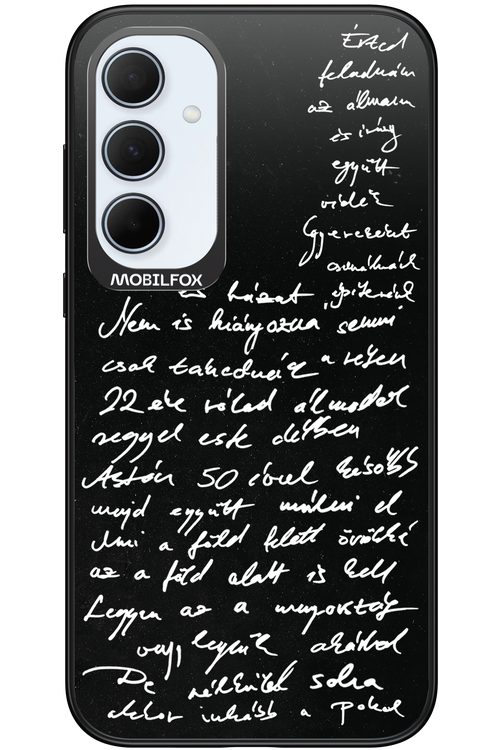 Érted
feladnám
az álmaim
és irány
együtt
vidék
Gyerekeket
csinálnánk
MOBILFOX
és házat építenénk
Nem is hiányozna semmi
csak takednánk a réten
22 éve rólad álmodok
reggel este délben
Aztán 50 évvel később
majd együtt múlni el
Ami a föld felett örökké
az a föld alatt is kell
Legyen az a mennyország
vagy legyünk akárhol
De nélküled soha
akkor inkább a pokol